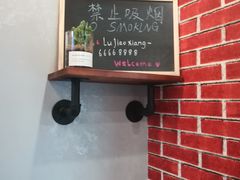 禁止吸烟
NO SMOKING
LuJiaoxiang~
66668888
Welcome